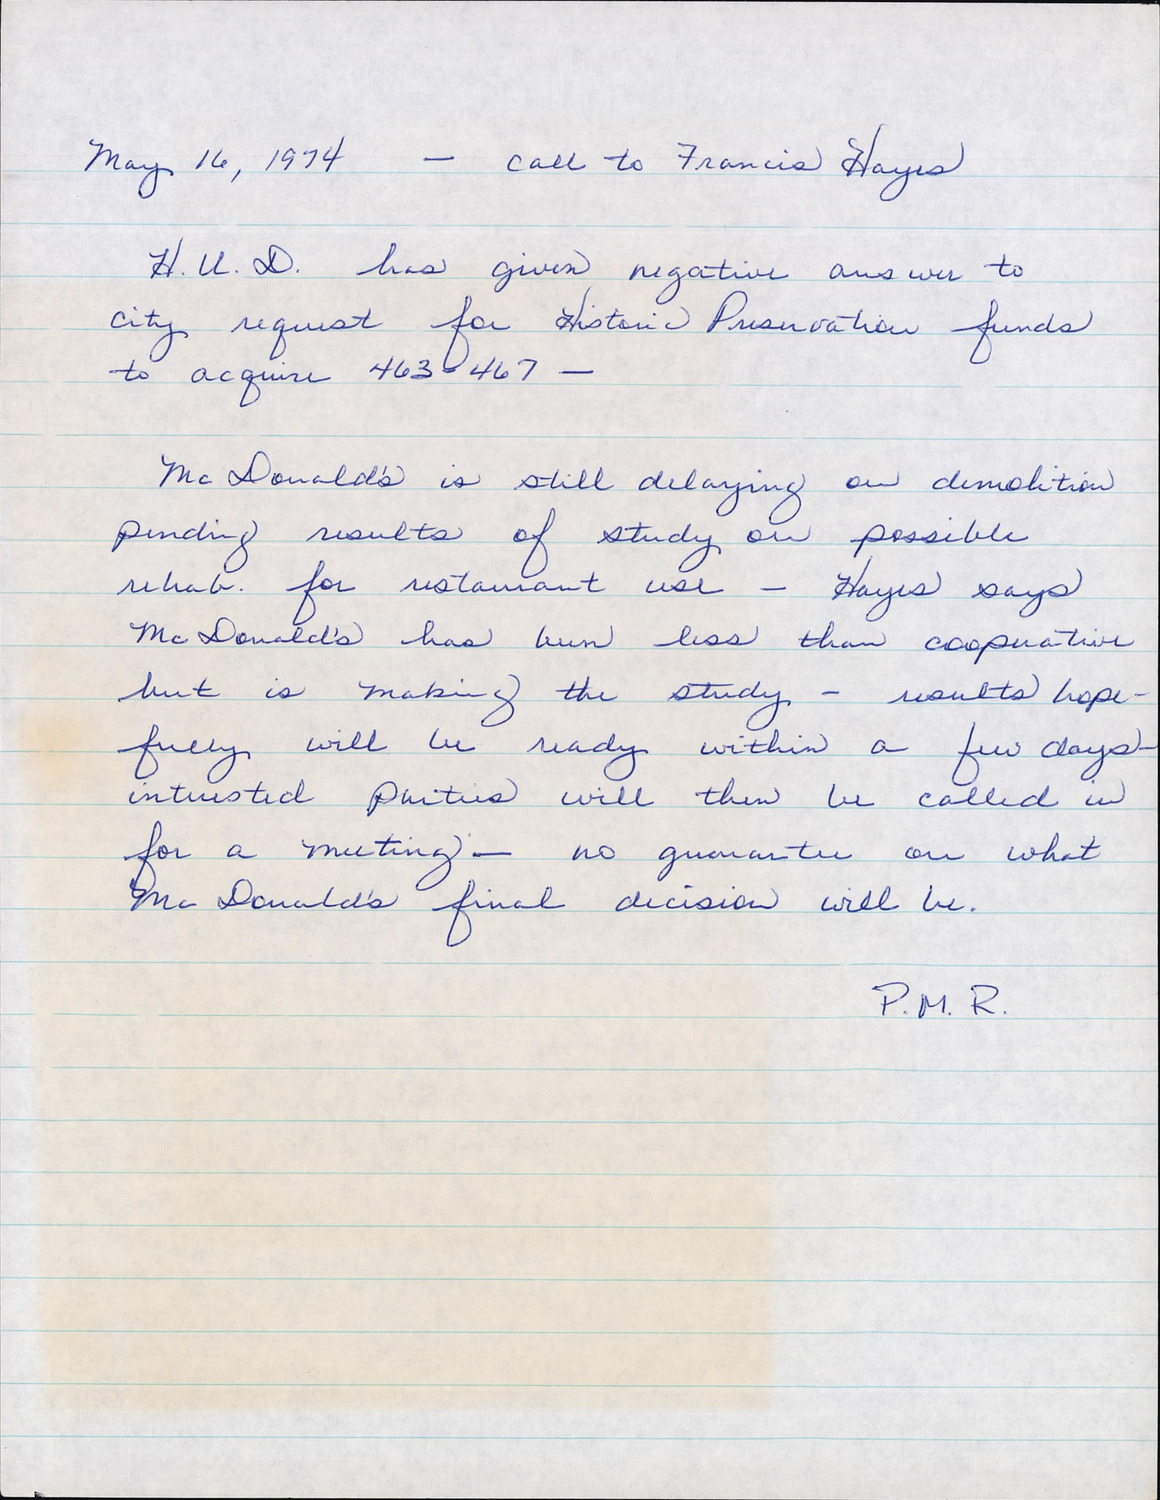 May 16, 1974 — call to Francis Hayes
H.U.D. has given negative answer to
city request for Historic Preservation funds
to acquire 463-467 —
McDonald's is still delaying on demolition
pending results of study on possible
rehab. for restaurant use — Hayes says
McDonald's has been less than cooperative
but is making the study - results hope-
fully will be ready within a few days-
interested parties will then be called in
for a meeting - no guarantee on what
McDonald's final decision will be.
P.M.R.